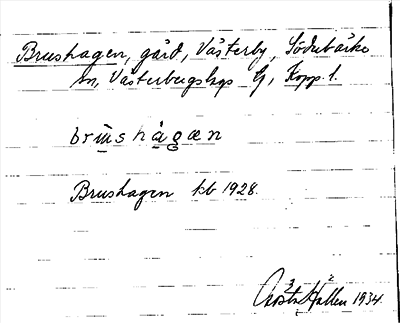 Brushagen, gård, Västerby, Söderbärke
sn, Västerbergslags Lg, Kopp. l.
brus hågæn
Brushagen kb 1928.
Gösta Hallen 1934.